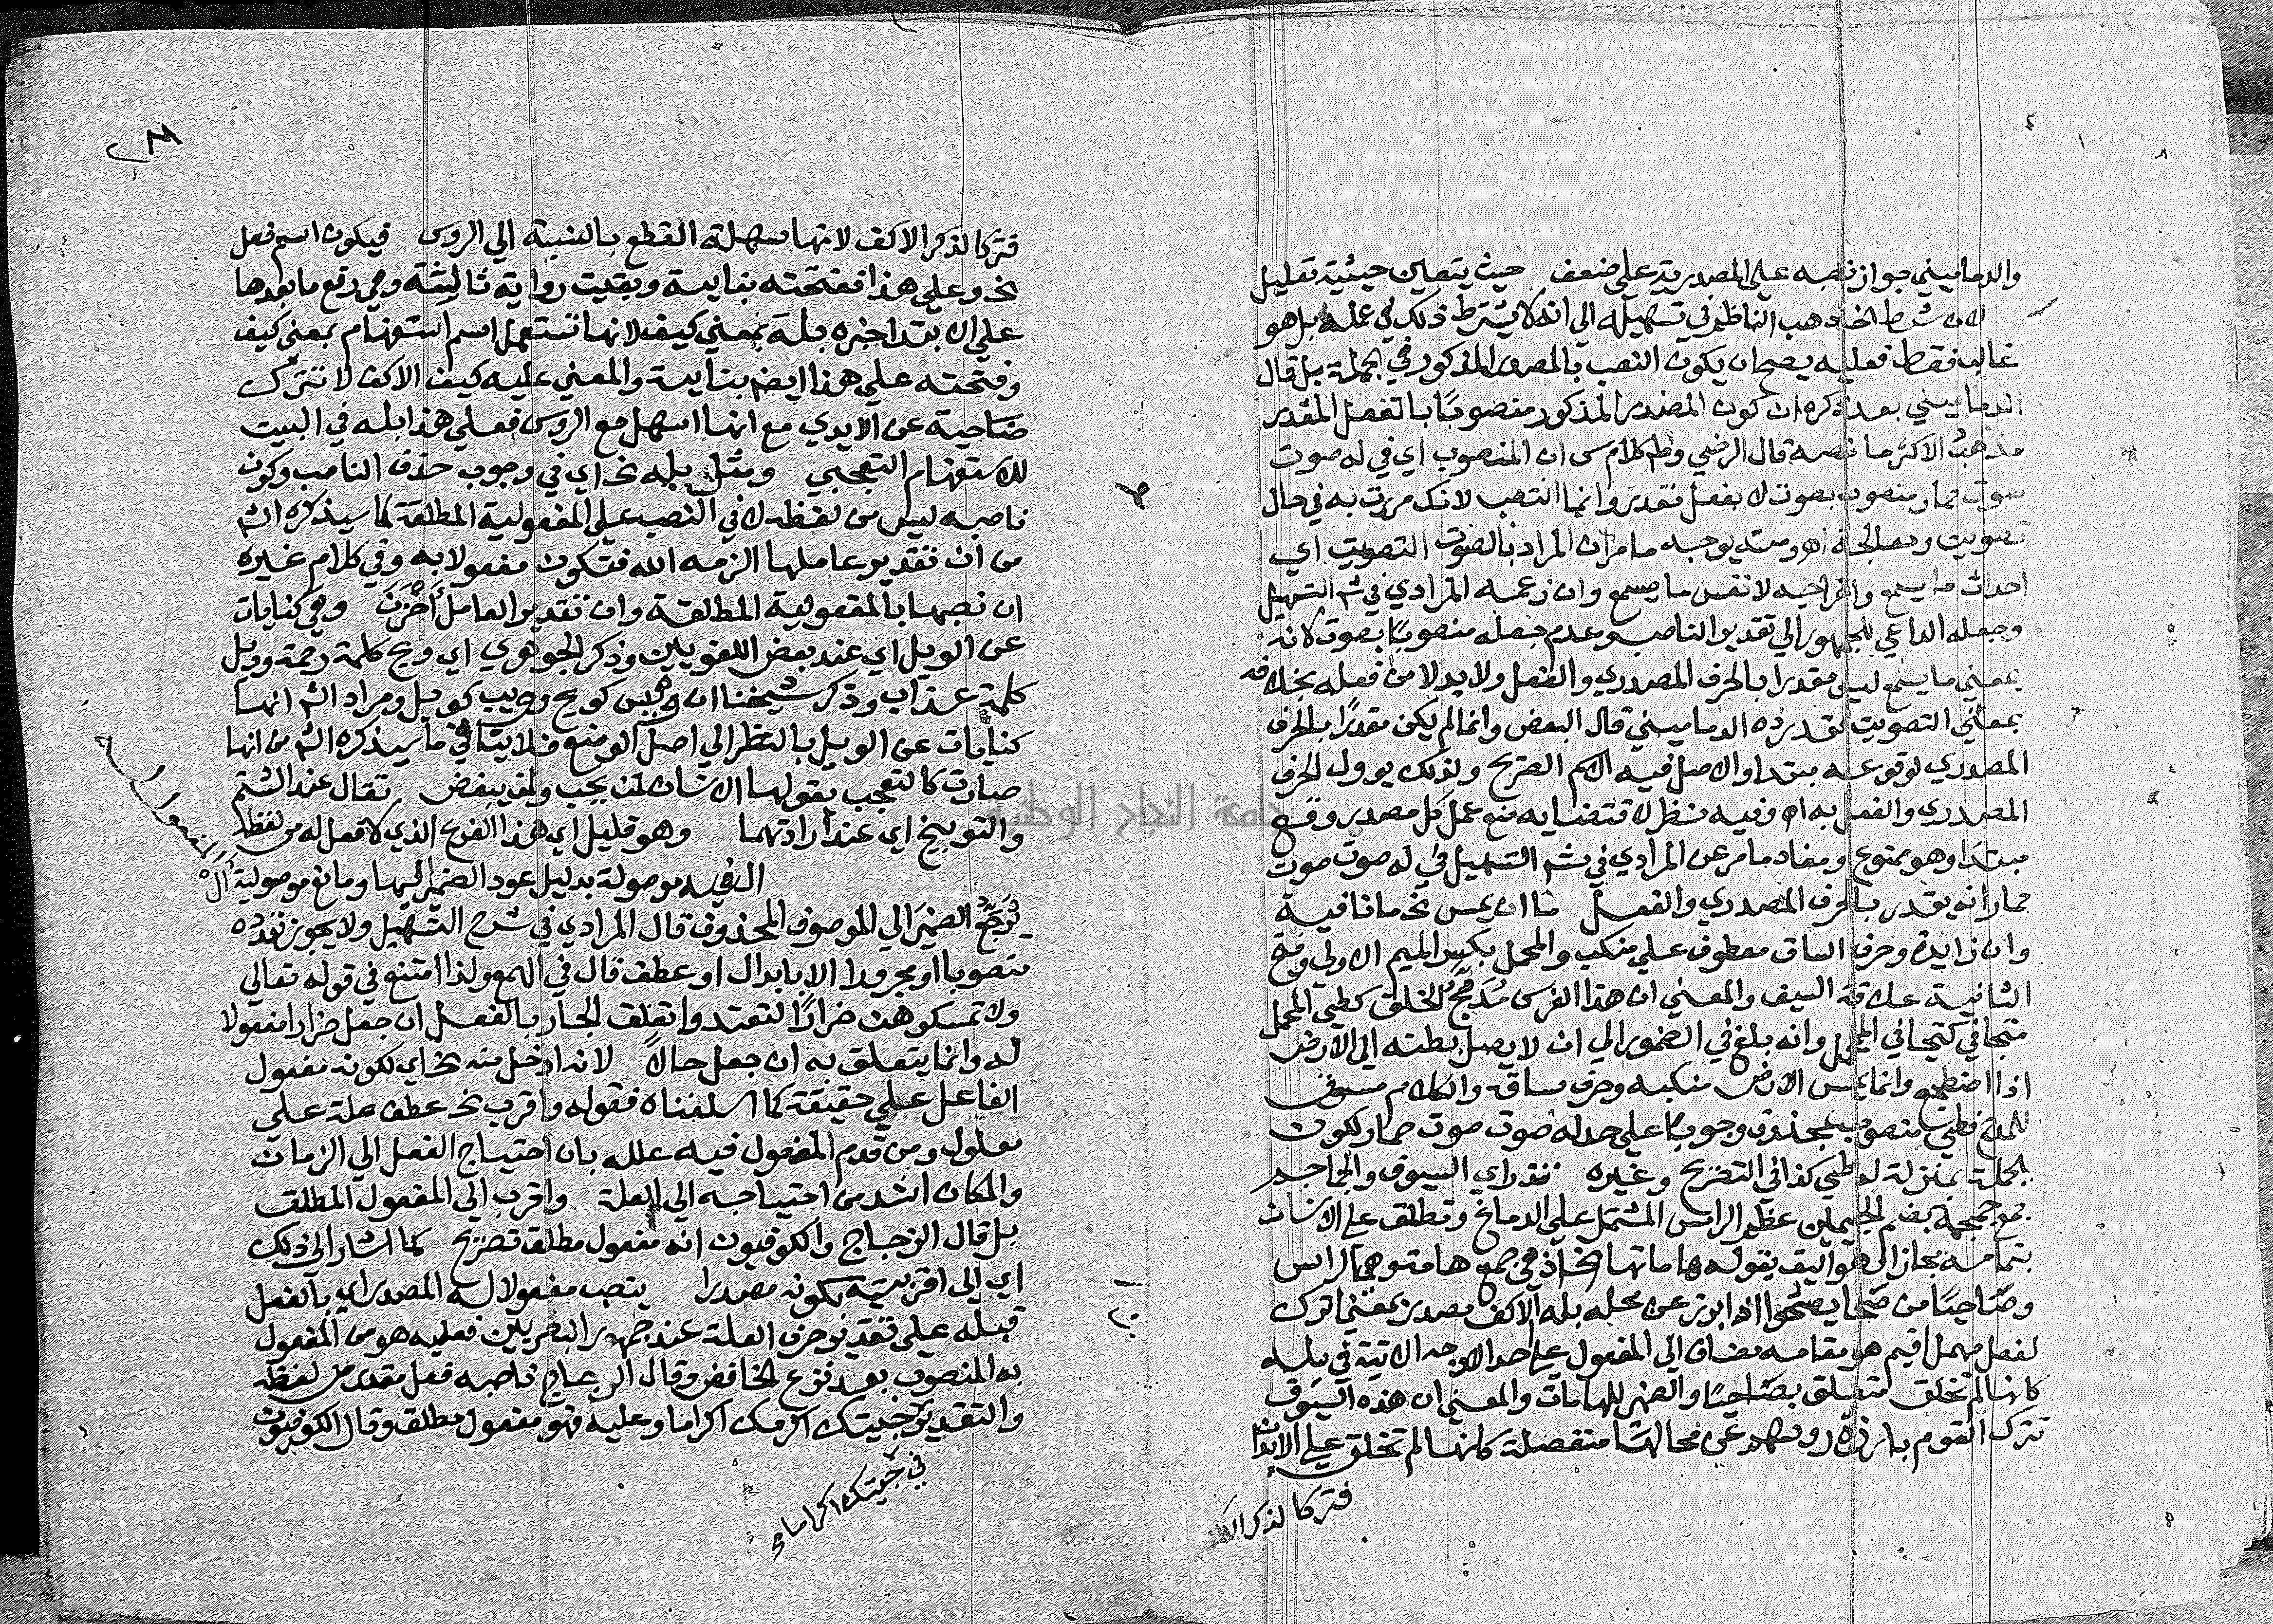 والدماميني جواز نصبه علي المصدرية علي ضعف حيث يتعين حيثية تعليل
لان شرط الخ ذهب الناظم في تسهيله الي انه لا يشترط ذلك في عمله بل هو
غالب فقط فعليه يصح ان يكون النصب بالمصدر المذكور في الجملة بل قال
الدماميني بعد ذكره ان كون المصدر المذكور منصوبا بالفعل المقدر
مذهب الاكثر ما نصه قال الرضي وظ كلام س ان المنصوب اي في له صوت
صوت حمار منصوب بصوت لا بفعل مقدر وانما انتصب لانك مررت به في حال
تصويت ومعالجة اهـ ومنه يوجبه ما مر ان المراد بالصوت التصويت اي
احداث ما يسمع واخراجيه لا نفس ما يسمع وان زعمه المرادي في شرح التسهيل
وجعله الداعي للجمهور الي تقدير الناصب وعدم جعله منصوبا بصوت لانه
بمعني ما يسمع ليس مقدرا بالحرف المصدري والفعل ولا بدلا من فعله بخلافه
بمعني التصويت فقد رده الدماميني قال البعض وانما لم يكن مقدرا بالحرف
المصدري لوقوعه مبتدا والاصل فيه الاسم الصريح ولذلك يوول الحرف
المصدري والفعل به اهـ وفيه نظر لاقتضايه منع عمل كل مصدر وقع
مبتدا وهو ممنوع ومفاد ما مر عن المرادي في شرح التسهيل في له صوت صوت
حمار انه يقدر بالحرف المصدري والفعل ما ان يمس نخ ما نافية
وان زايدة وحرف الساق معطوف علي منكب والمحمل بكسر الميم الاولي وفتح
الثانية علاقة السيف والمعني ان هذا الفرس مدمج الخلق كطي المحمل
متجافي كتجافي المحمل وانه بلغ في الضمور الي ان لا يصل بطنه الي الارض
اذا اضطجع وانما يمس الارض منكبه وحرف ساقه والكلام مسوق
للمدح فطي منصوب بمحذوف وجوبا علي حد له صوت صوت حمار لكون
الجملة بمنزلة له طي كذا في التصريح وغيره تذر اي السيوف والجماجم
جمع جمجمة بضم الجيمين عظم الراس المشتمل علي الدماغ وتطلق علي الانسان
بتمامه مجازا الي هو اليق بقوله هاماتها اذ هي جمع هامة وهي الراس
وضاحيا من ضحا يضحوا اذا برز عن محله بله الاكف مصدر بمعني اترك
لفعل مهمل اقيم هو مقامه مضاف الي المفعول علي احد الاوجه الاتية في بله
كانها لم تخلق متعلق بضاحيا والضمير للهامات والمعني ان هذه السيوف
تترك القوم بارزة روسهم عن محالها منفصلة كانها لم تخلق علي الابدان
فتركا لذكر الاكف
فتركا لذكر الاكف لانها سهلة القطع بالنسبة الي الروس فيكون اسم فعل
نخ وعلي هذا ففتحته بنايية وبقيت رواية ثالثة وهي رفع ما بعدها
علي الابتدا خبره بله بمعني كيف لانها تستعمل اسم استفهام بمعني كيف
وفتحته علي هذا ايضم بنايية والمعني عليه كيف الاكف لا تترك
ضاحية عن الايدي مع انها اسهل مع الروس فعلي هذا بله في البيت
للاستفهام التعجبي ومثل بله نخ اي في وجوب حذف الناصب وكون
ناصبه ليس من لفظه لا في النصب علي المفعولية المطلقة لما سيذكره الش
من ان تقدير عاملها الزمه الله فتكون مفعولا به وفي كلام غيره
ان نصبها بالمفعولية المطلقة وان تقدير العامل احزن وهي كنايات
عن الويل اي عند بعض اللغويين وذكر الجوهري اي ويح كلمة رحمة وويل
كلمة عذاب وذكر شيخنا ان ويس كويح وويب كويل ومراد الش انها
كنايات عن الويل بالنظر الي اصل الوضع فلا ينافي ما سيذكره الش من انها
صارت كالتعجب يقولها الانسان لمن يحب ولمن يبغض تقال عند الشتم
والتوبيخ اي عند ارادتهما وهو قليل اي هذا الفرع الذي لا فعل له من لفظه
المفعول له
ال فيه موصولة بدليل عود الضمير اليها ومانع موصولية ال
يرجع الضمير الي الموصوف المحذوف قال المرادي في شرح التسهيل ولا يجوز تعدده
منصوبا او مجرورا الا بابدال او عطف قال في الهمع ولذا امتنع في قوله تعالي
ولا تمسكوهن ضرارا لتعتدوا تعلق الجار بالفعل ان جعل ضرارا مفعولا
له وانما يتعلق به ان جعل حالا لانه ادخل منه نخ اي لكونه مفعول
الفاعل علي حقيقة كما اسلفناه فقوله واقرب نخ عطف علة علي
معلول ومن قدم المفعول فيه علله بان احتياج الفعل الي الزمان
والمكان اشد من احتياجه الي العلة واقرب الي المفعول المطلق
بل قال الزجاج والكوفيون انه مفعول مطلق تصريح كما اشار الي ذلك
اي الي اقربيته بكونه مصدرا ينصب مفعولا له المصدر اي بالفعل
قبله علي تقدير حرف العلة عند جمهور البصريين فعليه هو من المفعول
به المنصوب بعد نزع الخافض وقال الزجاج ناصبه فعل مقدر من لفظه
والتقدير جيتك اكرمك اكراما وعليه فهو مفعول مطلق وقال الكوفيون
في جيتك اكراما
جامعة النجاح الوطنية